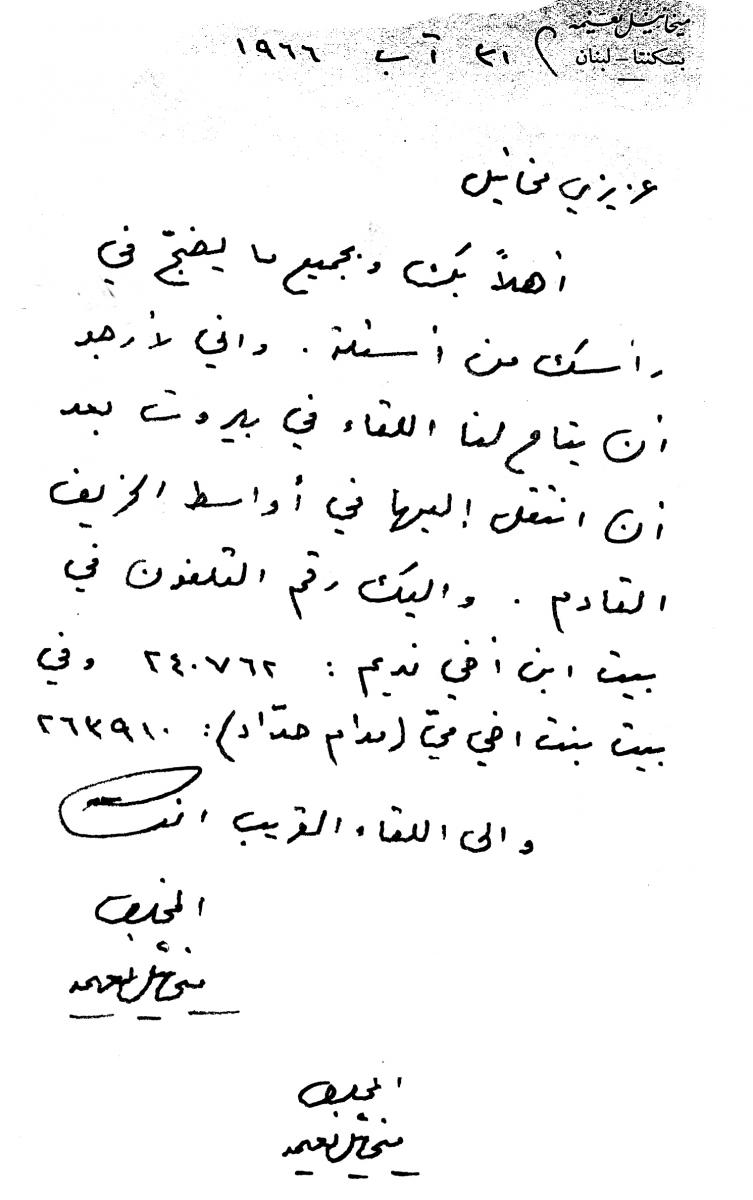 ميخائيل نعيمه
بسكنتا - لبنان
٣١ آب ١٩٦٦
عزيزي مخائيل
أهلاً بك وبجميع ما يضجّ في
رأسك من أسئلة . واني لأرجو
أن يتاح لنا اللقاء في بيروت بعد
أن انتقل إليها في أواسط الخريف
القادم . واليك رقم التلفون في
بيت ابن أخي نديم : ٢٤٠٧٦٢ وفي
بيت بنت اخي ميّ (مدام حدّاد): ٢٦٣٩١٠
والى اللقاء القريب
المخلص
ميخائيل نعيمه
المخلص
ميخائيل نعيمه